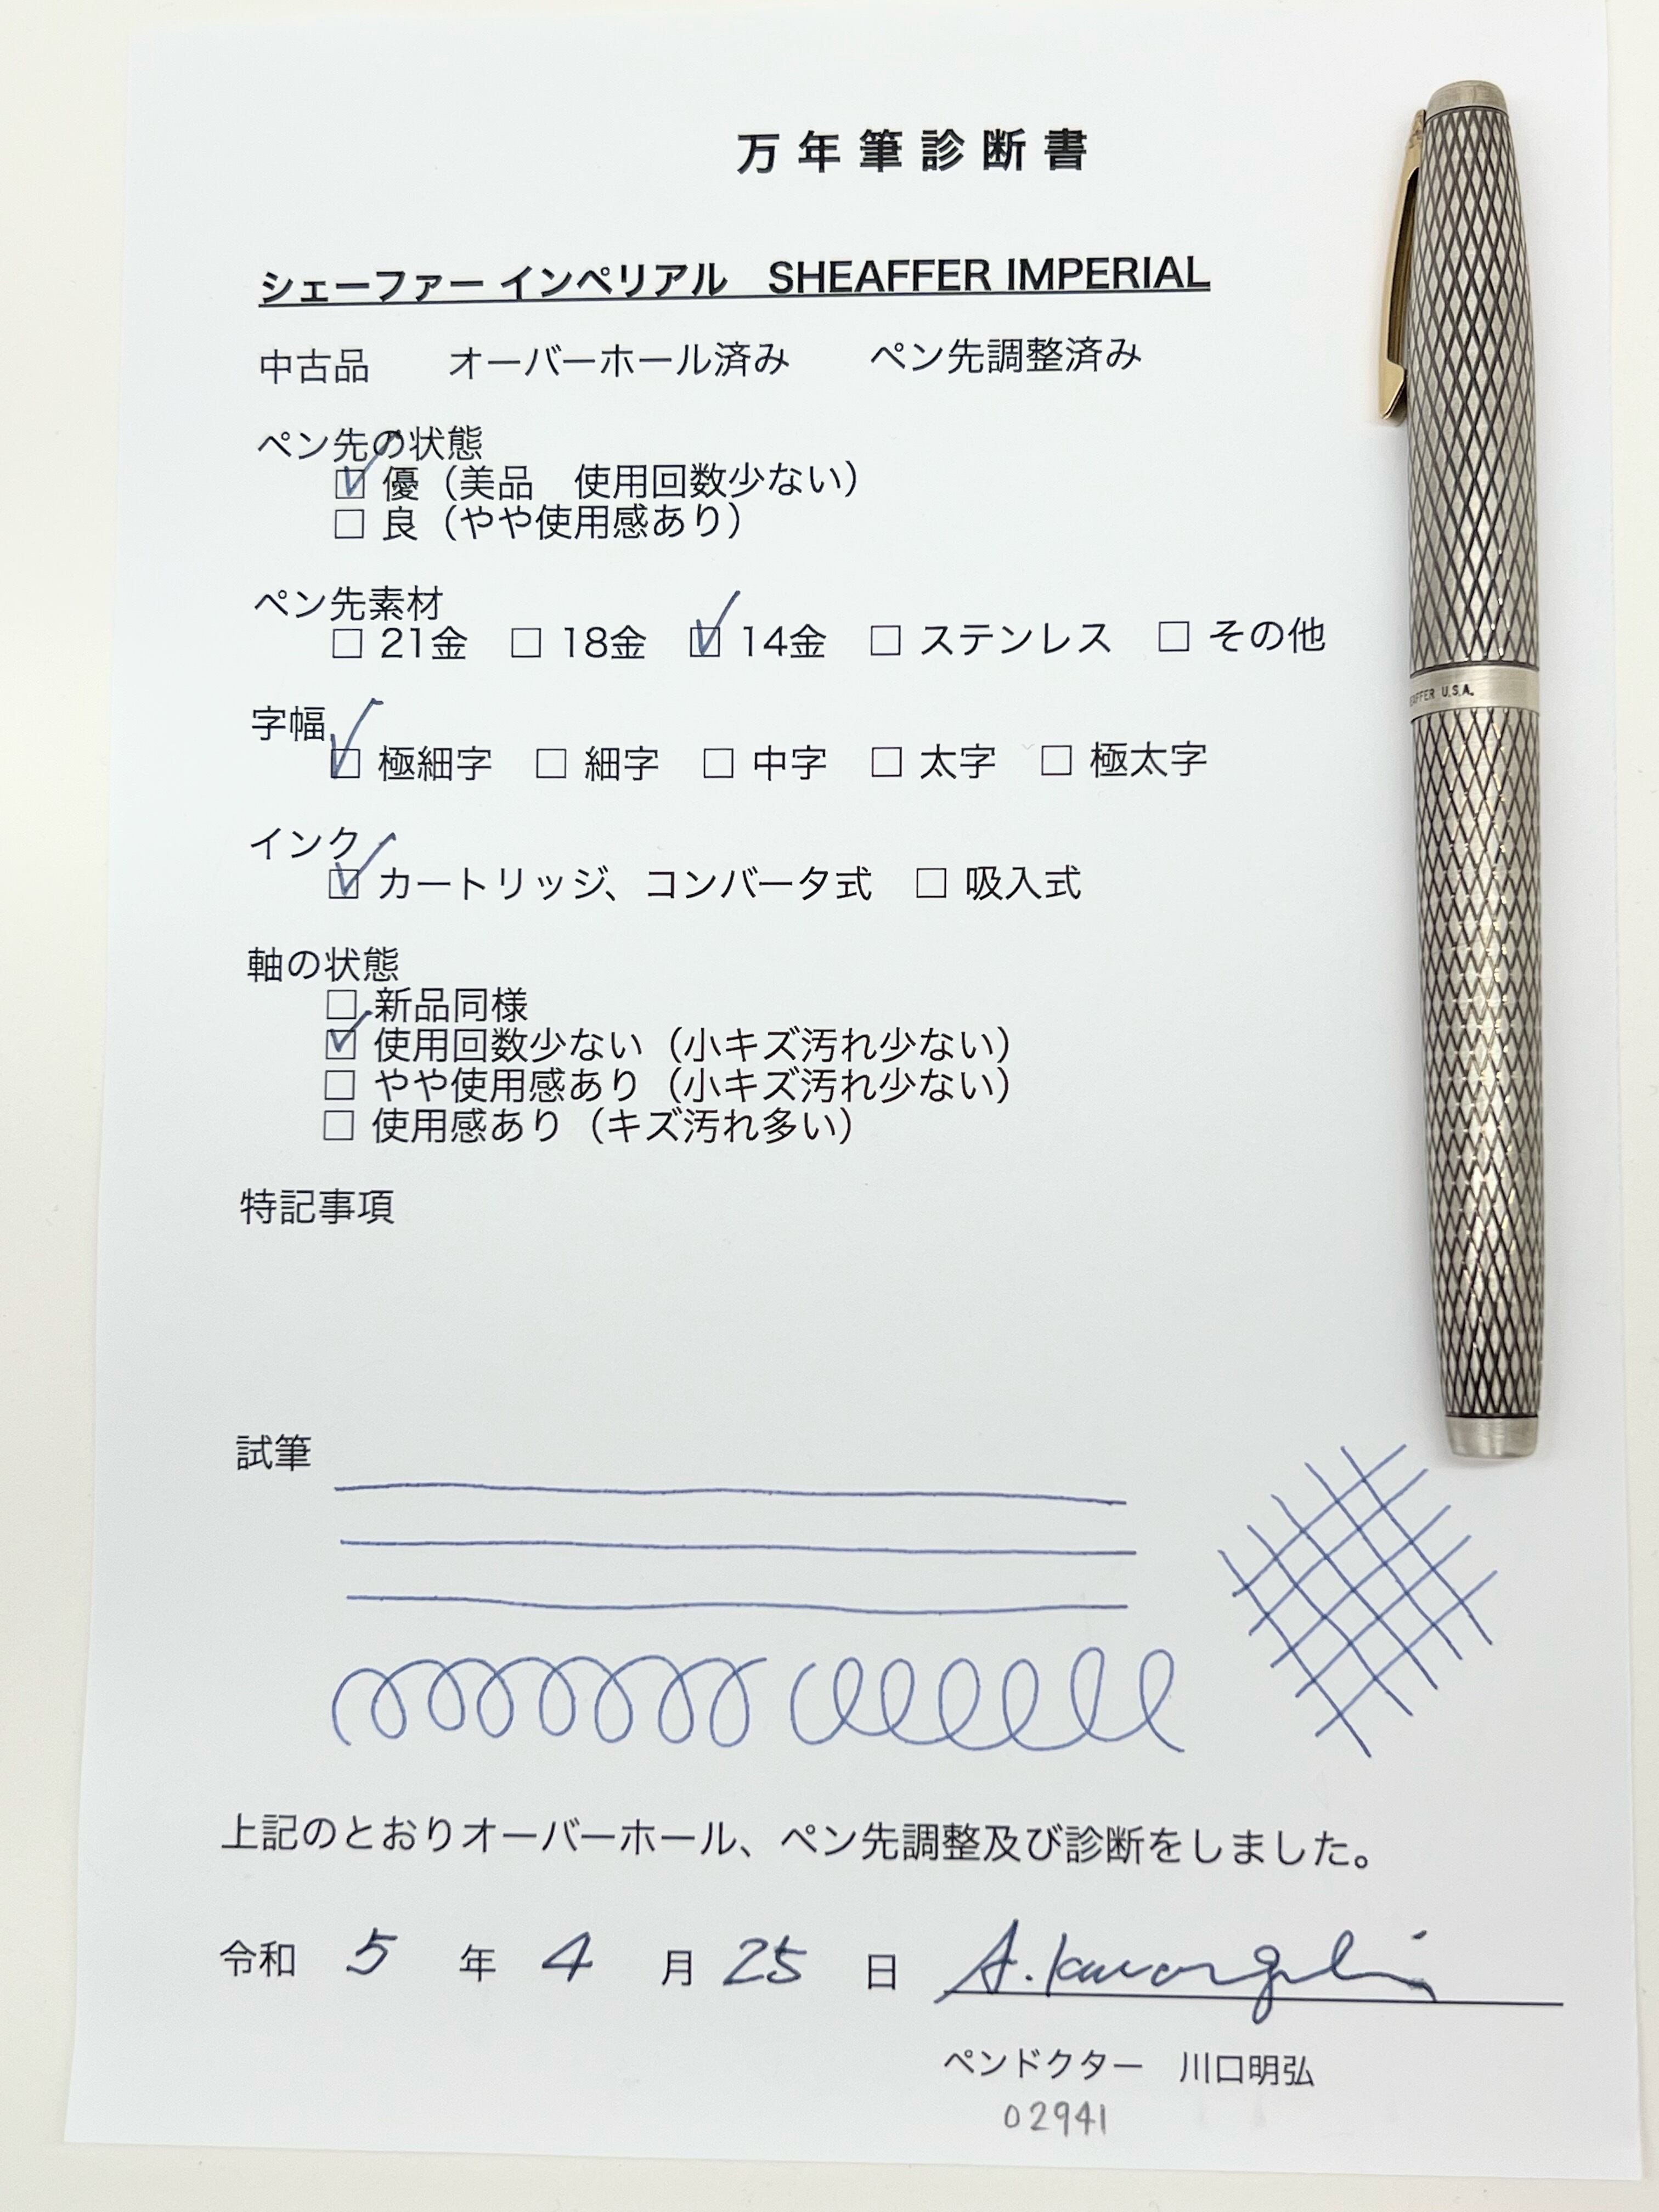 万年筆診断書
シェーファー インペリアル　SHEAFFER IMPERIAL
中古品　　オーバーホール済み　　ペン先調整済み
ペン先の状態
☑ 優（美品　使用回数少ない）
☐ 良（やや使用感あり）
ペン先素材
☐ 21金　☐ 18金　☑ 14金　☐ ステンレス　☐ その他
U.S.A.
字幅
☑ 極細字　☐ 細字　☐ 中字　☐ 太字　☐ 極太字
インク
☑ カートリッジ、コンバータ式　☐ 吸入式
軸の状態
☐ 新品同様
☑ 使用回数少ない（小キズ汚れ少ない）
☐ やや使用感あり（小キズ汚れ少ない）
☐ 使用感あり（キズ汚れ多い）
特記事項
試筆
上記のとおりオーバーホール、ペン先調整及び診断をしました。
令和　5　年　4　月　25　日
ペンドクター　川口明弘
02941